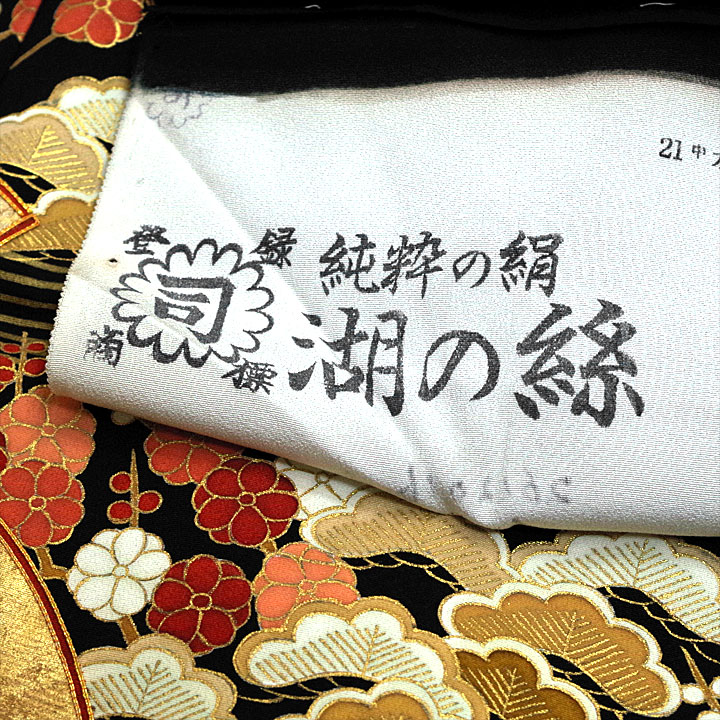 21中
登録
純粋の絹
司
商標
湖の絲